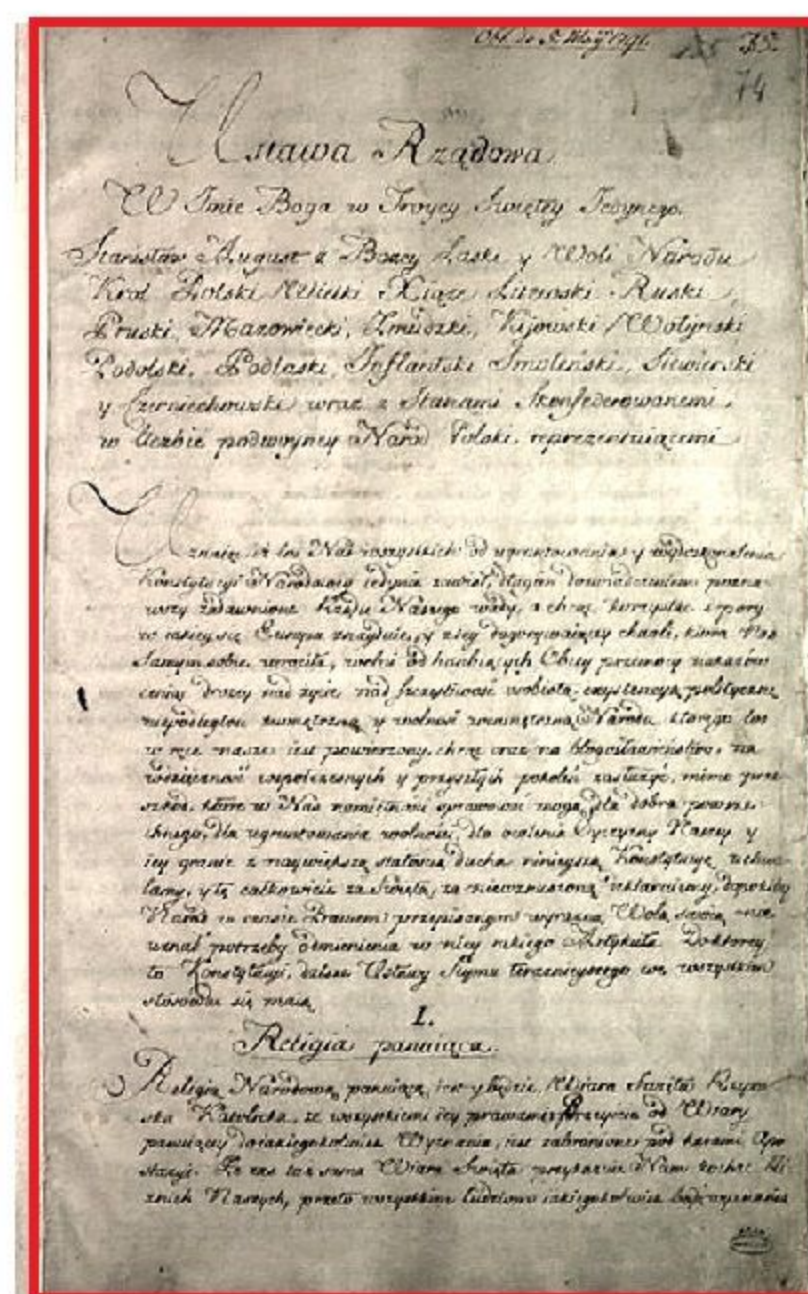 74
Ustawa Rządowa
W Imie Boga w Troycy Swiętey Jedynego.
Stanisław August z Bożey Łaski y Woli Narodu
Krol Polski Wielki Xiąze Litewski Ruski
Pruski, Mazowiecki, Zmudzki, Kijowski Wołynski
Podolski, Podlaski, Inflantski Smolenski, Siewierski
y Czerniechowski wraz z Stanami skonfederowanemi
w liczbie podwoyney Narod Polski reprezentuiącemi
Uznaiąc, iz los Nas wszystkich od ugruntowania y wydoskonalenia
Konstytucyi Narodowey iedynie zawisł, długim doswiadczeniem pozna-
wszy zadawnione Rządu Naszego wady, a chcąc korzystać z pory
w iakiey się Europa znayduie, y z tey dogorywaiącey chwili, ktora Nas
samym sobie wrociła, wolni od hanbiących Obcey przemocy nakazow
ceniąc drozey nad zycie, nad szczęsliwosc osobistą, exystencyą polityczną
niepodległosc zewnętrzną y wolnosc wewnętrzną Narodu, ktorego los
w ręce nasze iest powierzony, chcąc oraz na błogosławienstwo, na
wdzięcznosc wspołczesnych y przyszłych pokolen zasłuzyc, mimo prze-
szkod, ktore w Nas namiętnosci sprawowac mogą, dla dobra powsze-
chnego, dla ugruntowania wolnosci, dla ocalenia Oyczyzny Naszey y
iey granic z naywiększą stałoscią ducha ninieyszą Konstytucyę uchwa-
lamy, y tę całkowicie za swiętą, za niewzruszoną deklaruiemy, dopokiby
Narod w czasie Prawem przepisanym wyrazną Wolą swoią nie
uznał potrzeby odmienienia w niey iakiego Artykułu. Do ktorey
to Konstytucyi, dalsze Ustawy Seymu teraznieyszego we wszystkim
stosowac się maią
I.
Religia panuiąca.
Religią Narodową panuiącą iest y będzie Wiara Swięta Rzym-
ska Katolicka, ze wszystkiemi iey prawami. Przeyscie od Wiary
panuiącey do iakiegokolwiek Wyznania, iest zabronione pod karami Apo-
stazyi. Ze zas taz sama Wiara Swięta przykazuie Nam kochac bli-
znich Naszych, przeto wszystkim ludziom iakiegokolwiek bądz wyznania